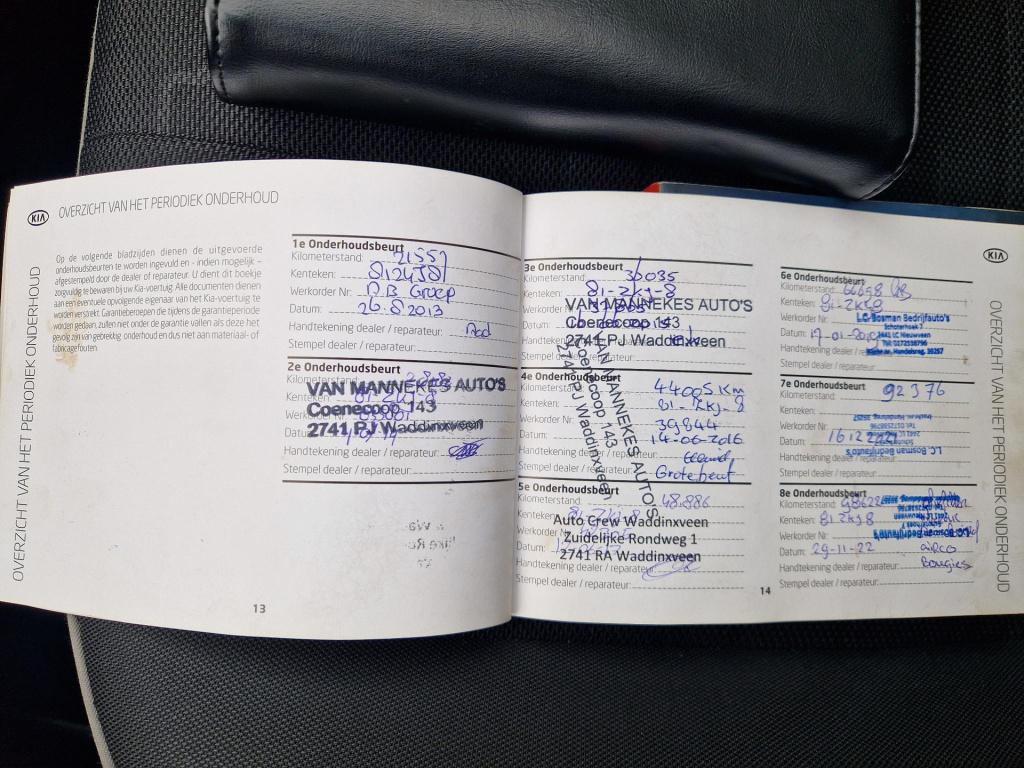 KIA
OVERZICHT VAN HET PERIODIEK ONDERHOUD
OVERZICHT VAN HET PERIODIEK ONDERHOUD
Op de volgende bladzijden dienen de uitgevoerde
onderhoudsbeurten te worden ingevuld en - indien mogelijk -
afgestempeld door de dealer of reparateur. U dient dit boekje
zorgvuldig te bewaren bij uw Kia-voertuig. Alle documenten dienen
aan een eventuele opvolgende eigenaar van het Kia-voertuig te
worden verstrekt. Garantieberoepen die tijdens de garantieperiode
worden gedaan, zullen niet onder de garantie vallen als deze het
gevolg zijn van gebrekkig onderhoud en dus niet aan materiaal- of
fabricagefouten.
1e Onderhoudsbeurt
Kilometerstand: 21557
Kenteken:
Werkorder Nr.: A.B. Groep
Datum: 26.8.2013
Handtekening dealer / reparateur:
Stempel dealer / reparateur:
2e Onderhoudsbeurt
Kilometerstand:
VAN MANNEKES AUTO'S
Kenteken: 81-ZKJ-8
Coenecoop 143
Werkorder Nr.:
2741 PJ Waddinxveen
Datum:
Handtekening dealer / reparateur:
Stempel dealer / reparateur:
13
3e Onderhoudsbeurt
Kilometerstand: 36035
Kenteken: 81-ZKJ-8
VAN MANNEKES AUTO'S
Werkorder Nr.:
Coenecoop 143
Datum:
2741 PJ Waddinxveen
Handtekening
Stempel
4e Onderhoudsbeurt
Kilometerstand: 44005 KM
Kenteken: 81-ZKJ-8
Werkorder Nr.: 39844
Datum: 14-06-2016
Handtekening dealer / reparateur:
Stempel dealer / reparateur: Grote beurt
VAN MANNEKES AUTO'S
Coenecoop 143
2741 PJ Waddinxveen
5e Onderhoudsbeurt
Kilometerstand: 48.886
Kenteken: 81-ZKJ-8
Auto Crew Waddinxveen
Werkorder Nr.
Zuidelijke Rondweg 1
Datum:
2741 RA Waddinxveen
Handtekening dealer / reparateur:
Stempel dealer / reparateur:
14
KIA
6e Onderhoudsbeurt
Kilometerstand: 66698
Kenteken: 81-ZKJ8
Werkorder Nr.
L.G. Bosman Bedrijfauto's
Schoterhoek 7
2441 LC Nieuveen
Datum: 17-01-20
Tel: 0172538796
Handtekening
Stempel dealer / reparateur:
7e Onderhoudsbeurt
Kilometerstand: 92376
Kenteken:
Werkorder Nr.:
Datum: 16122021
L.G. Bosman Bedrijfauto's
Handtekening dealer / reparateur:
Stempel dealer / reparateur:
8e Onderhoudsbeurt
Kilometerstand: 98628
Kenteken: 81ZKJ8
Werkorder Nr.:
L.G. Bosman Bedrijfauto's
Datum: 29-11-22 airco
Handtekening dealer / reparateur: Bougies
Stempel dealer / reparateur:
OVERZICHT VAN HET PERIODIEK ONDERHOUD